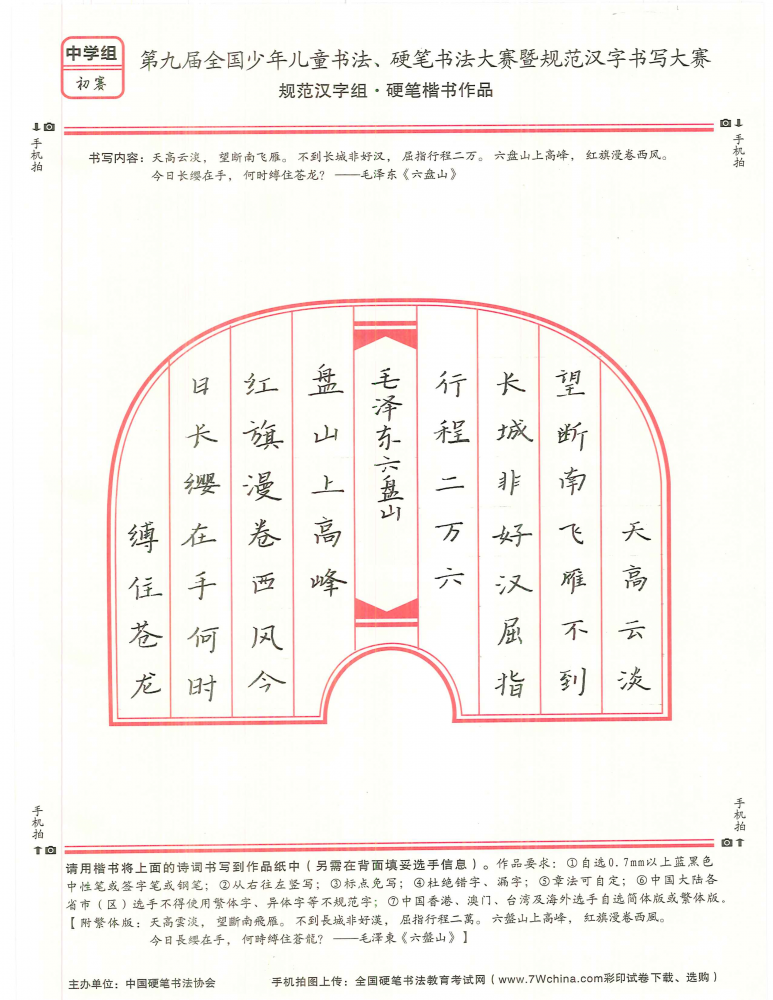 中学组
初赛
第九届全国少年儿童书法、硬笔书法大赛暨规范汉字书写大赛
规范汉字组·硬笔楷书作品
手机拍
手机拍
书写内容：天高云淡，望断南飞雁。不到长城非好汉，屈指行程二万。六盘山上高峰，红旗漫卷西风。
今日长缨在手，何时缚住苍龙？——毛泽东《六盘山》
天高云淡
望断南飞雁不到
长城非好汉屈指
行程二万六
毛泽东六盘山
盘山上高峰
红旗漫卷西风今
日长缨在手何时
缚住苍龙
手机拍
手机拍
请用楷书将上面的诗词书写到作品纸中（另需在背面填妥选手信息）。作品要求：①自选0.7mm以上蓝黑色
中性笔或签字笔或钢笔；②从右往左竖写；③标点免写；④杜绝错字、漏字；⑤章法可自定；⑥中国大陆各
省市（区）选手不得使用繁体字、异体字等不规范字；⑦中国香港、澳门、台湾及海外选手自选简体版或繁体版。
【附繁体版：天高雲淡，望斷南飛雁。不到長城非好漢，屈指行程二萬。六盤山上高峰，紅旗漫卷西風。
今日長纓在手，何時縛住蒼龍？——毛澤東《六盤山》】
主办单位：中国硬笔书法协会
手机拍图上传：全国硬笔书法教育考试网（www.7Wchina.com彩印试卷下载、选购）